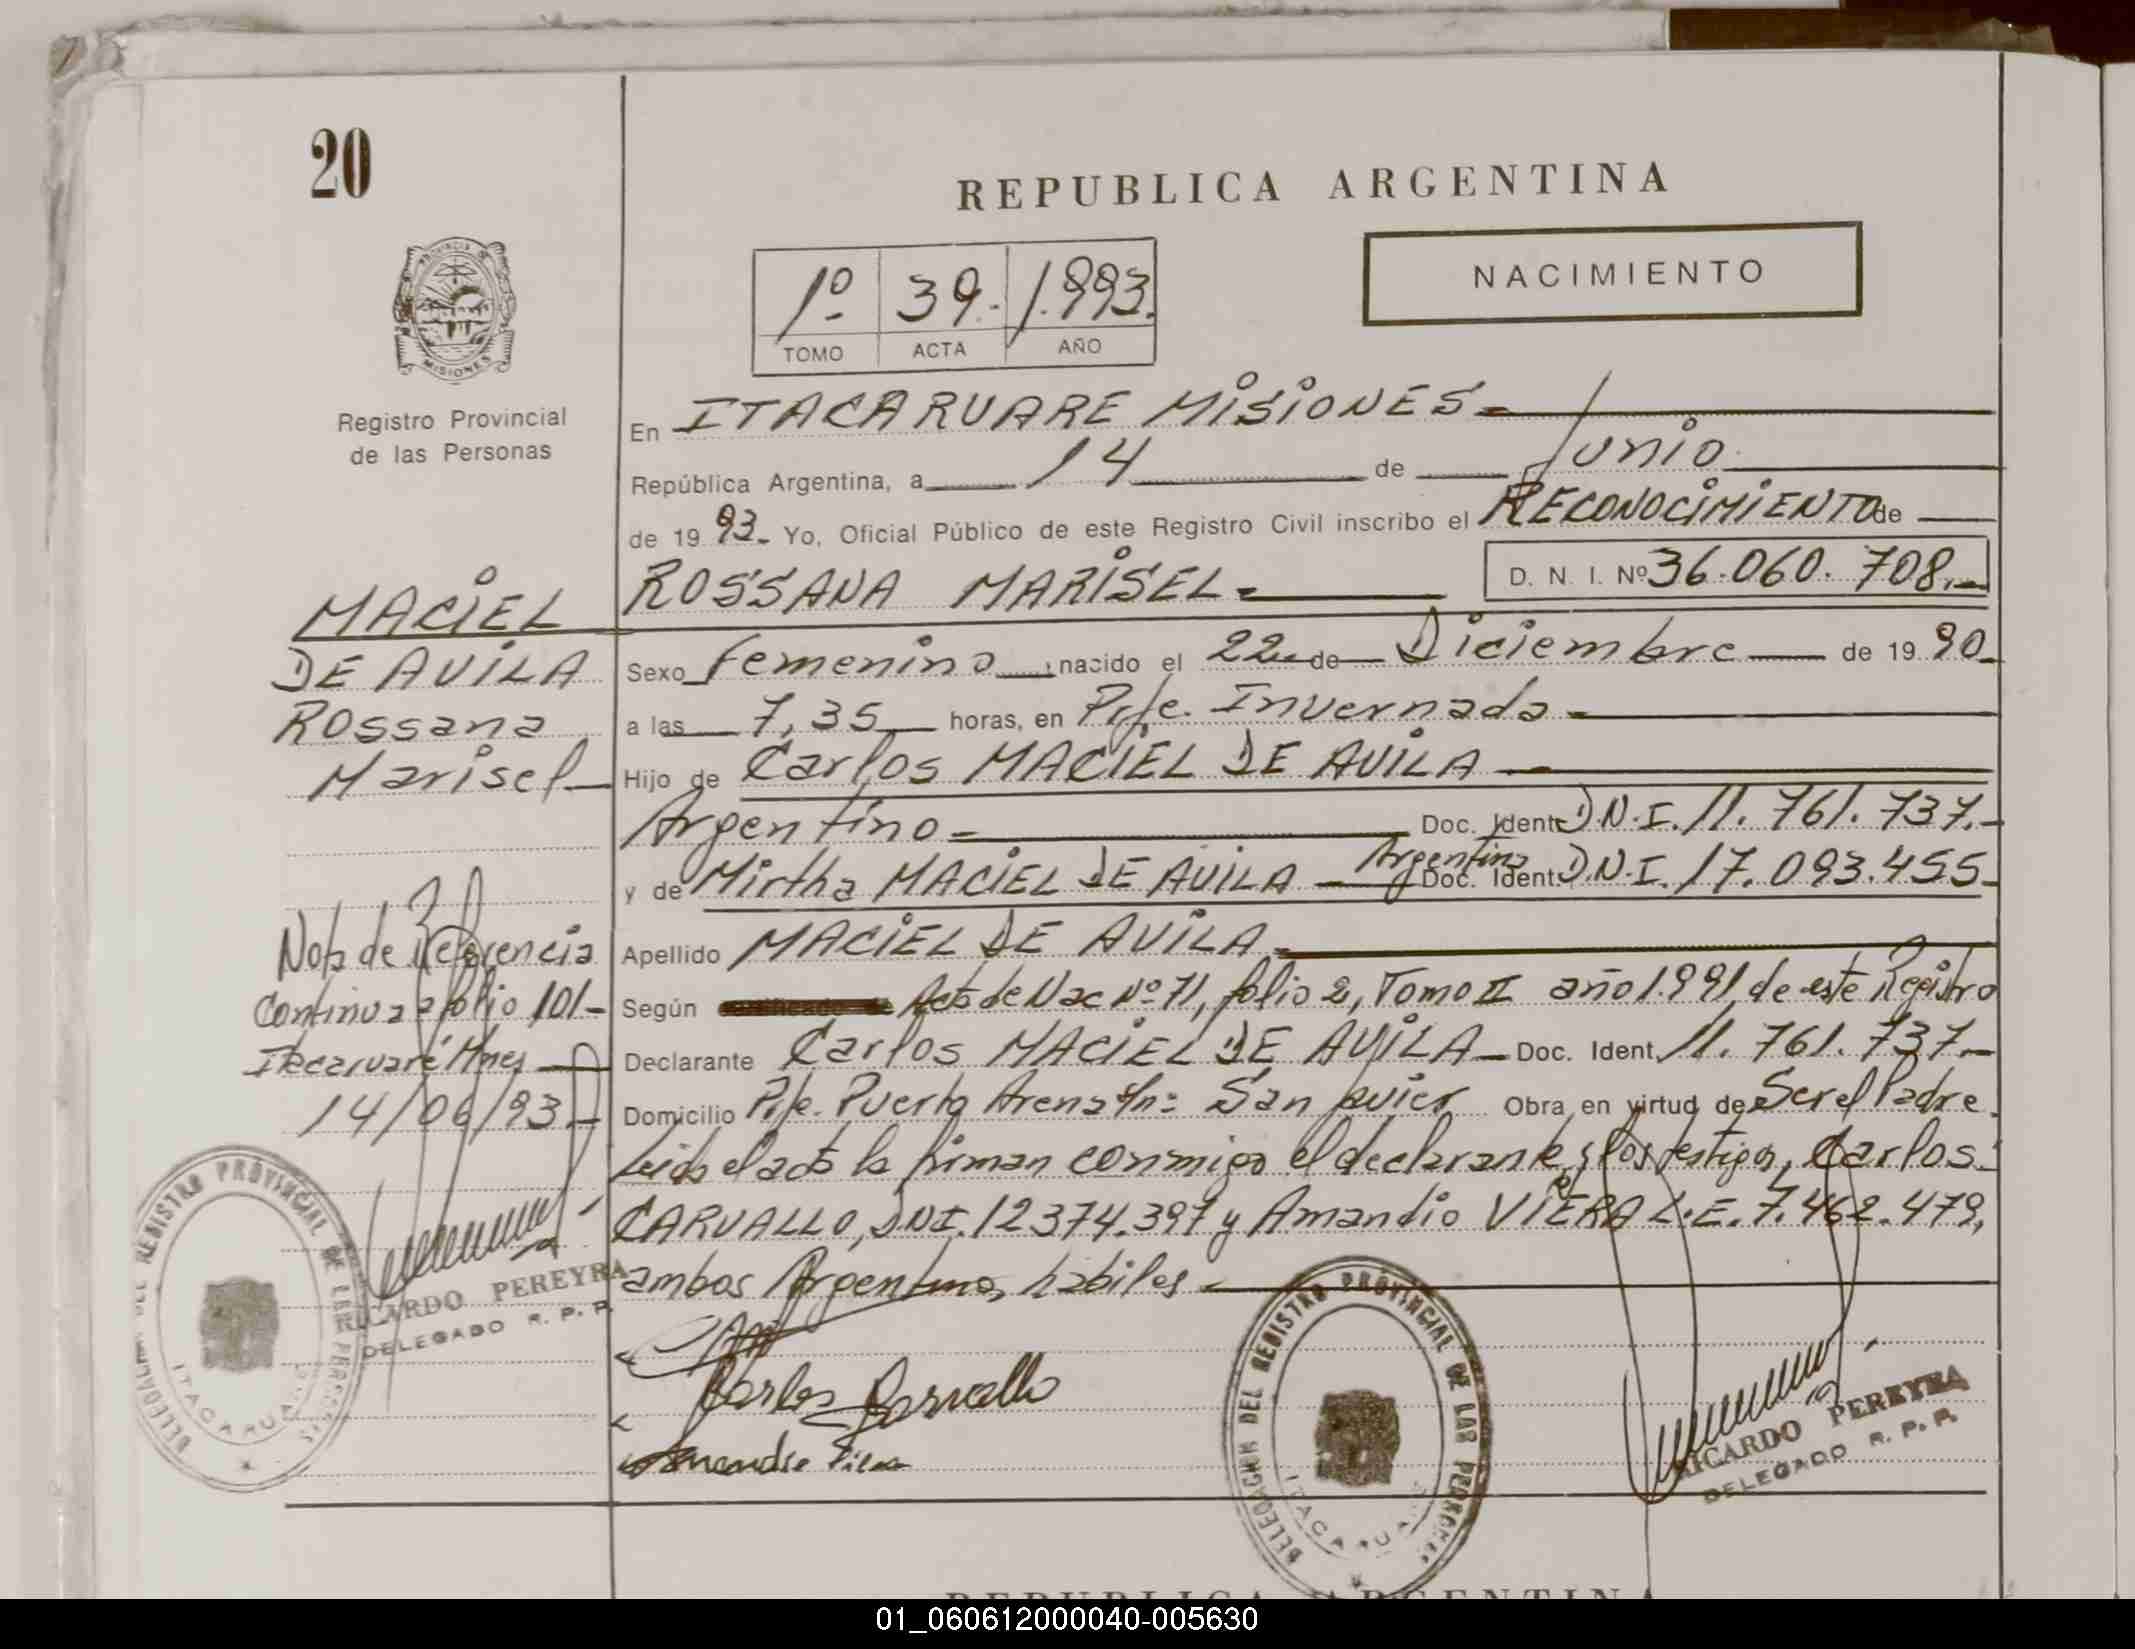 20
REPUBLICA ARGENTINA
NACIMIENTO
1º 39.- 1.993.
TOMO ACTA AÑO
PROVINCIA DE MISIONES
Registro Provincial
de las Personas
En ITACARUARE MISIONES-
República Argentina, a 14 de Junio
de 19 93- Yo, Oficial Público de este Registro Civil inscribo el RECONOCIMIENTO de
ROSSANA MARISEL- D. N. I. Nº 36.060.708.-
MACIEL
DE AVILA
Rossana
Marisel-
Sexo Femenino, nacido el 22 de Diciembre de 19 90-
a las 7,35 horas, en Pje. Invernada-
Hijo de Carlos MACIEL DE AVILA-
Argentino- Doc. Ident. D.N.I. 11.761.737.-
y de Mirtha MACIEL DE AVILA - Argentina Doc. Ident. D.N.I. 17.093.455-
Apellido MACIEL DE AVILA-
Según Acta de Nac Nº 71, folio 2, Tomo II año 1.991, de este Registro
Declarante Carlos MACIEL DE AVILA- Doc. Ident. 11.761.737.-
Domicilio Pje. Puerto Arena San Javier Obra en virtud de Ser el Padre.
Leida el acta la firman conmigo el declarante y los testigos, Carlos
CARVALLO, D.N.I. 12374.397 y Amandio VIERA L.E. 7.462.479,
ambos Argentinos, habiles-
Nota de Referencia
Continua a folio 101-
Itacaruaré Mnes
14/06/93.-
DELEGACION DEL REGISTRO PROVINCIAL DE LAS PERSONAS
ITACARUARE
RICARDO PEREYRA
DELEGADO R. P. P.
Carlos Carvallo
Amandio Viera
DELEGACION DEL REGISTRO PROVINCIAL DE LAS PERSONAS
ITACARUARE
RICARDO PEREYRA
DELEGADO R. P. P.
REPUBLICA ARGENTINA
01_060612000040-005630